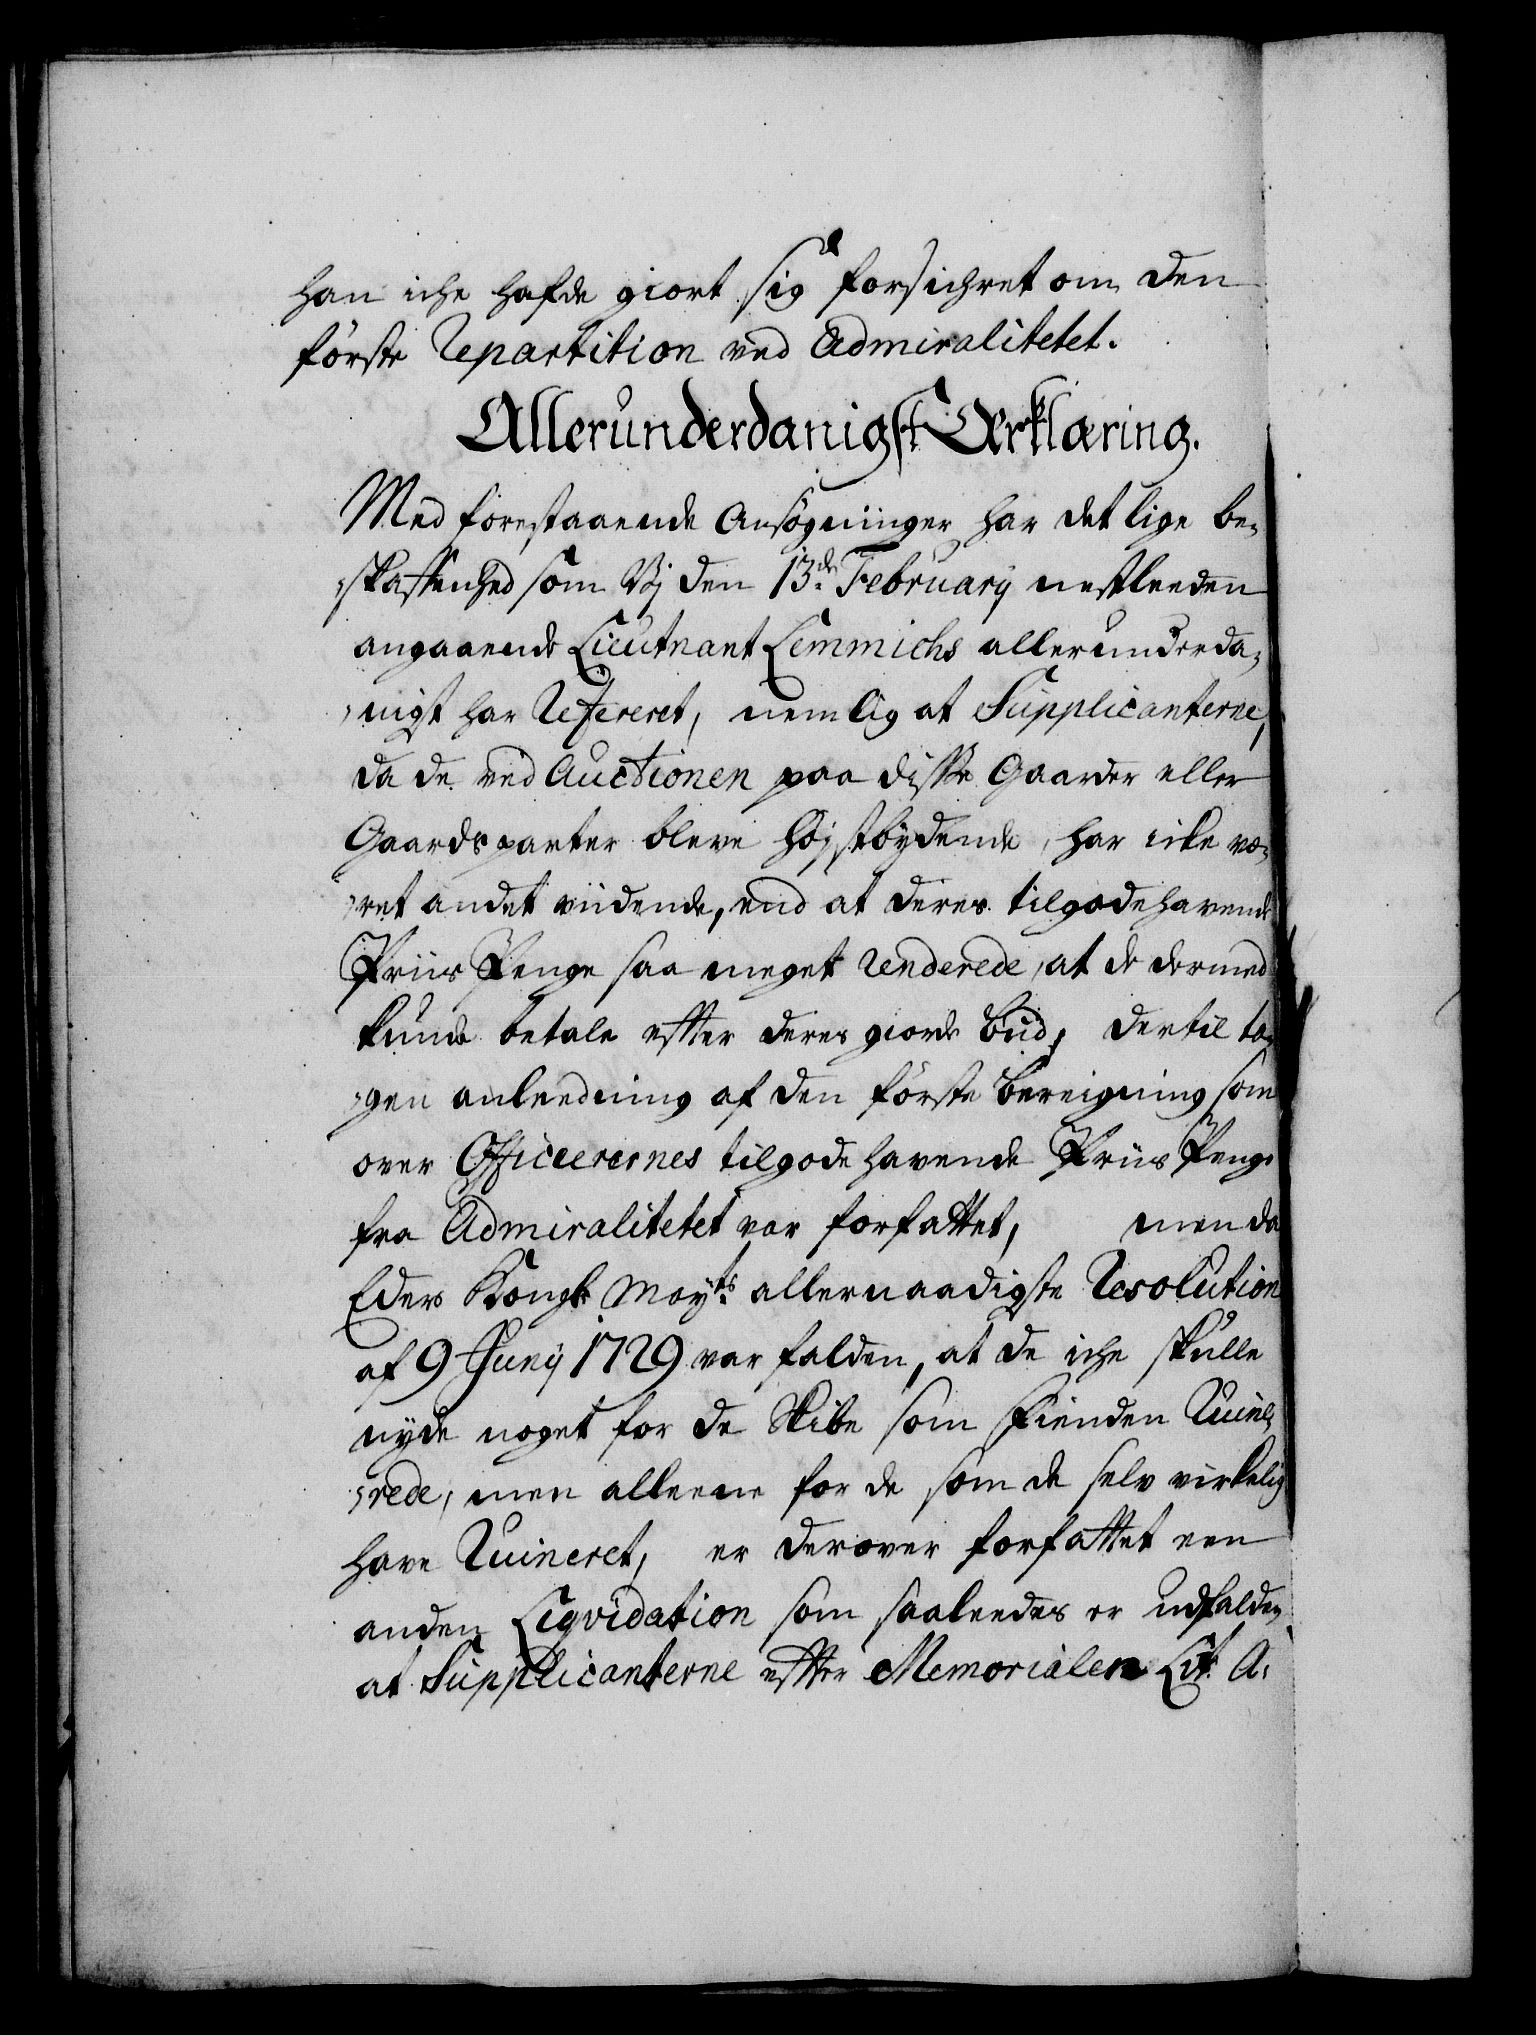 han iche hafde giort sig forsichret om den
förste Repartition ved Admiralitetet.
Allerunderdanigst Erklæring.
Med forestaaende Ansøgninger har det lige be-
skaffenhed som Vj den 13de February nestleeden
angaaende Lieutnant Lemmichs allerunderda-
nigst har Refereret, nemlig at Supplicanterne,
da de ved Auctionen paa disse Gaarder eller
Gaards parter bleve højstbydende, har icke væ-
ret andet viidende, end at deres tilgodehavende
Priis Penge saa meget Renderede, at de dermed
kunde betale efter deres giorde bud, dertil ta-
gen anleedning af den förste bereigning som
over Officerernes tilgode havende Priis Penge
fra Admiralitetet var forfattet, men da
Eders Kongl Mayts allernaadigste Resolution
af 9 Junij 1729 var falden, at de iche skulle
nyde noget for de Skibe som Fienden Ruine-
rede, men alleene for de som de selv virkelig
have Ruineret, er derover forfattet een
anden Liqvidation som saaleedes er udfalden,
at Supplicanterne efter Memorialen Lit: A: